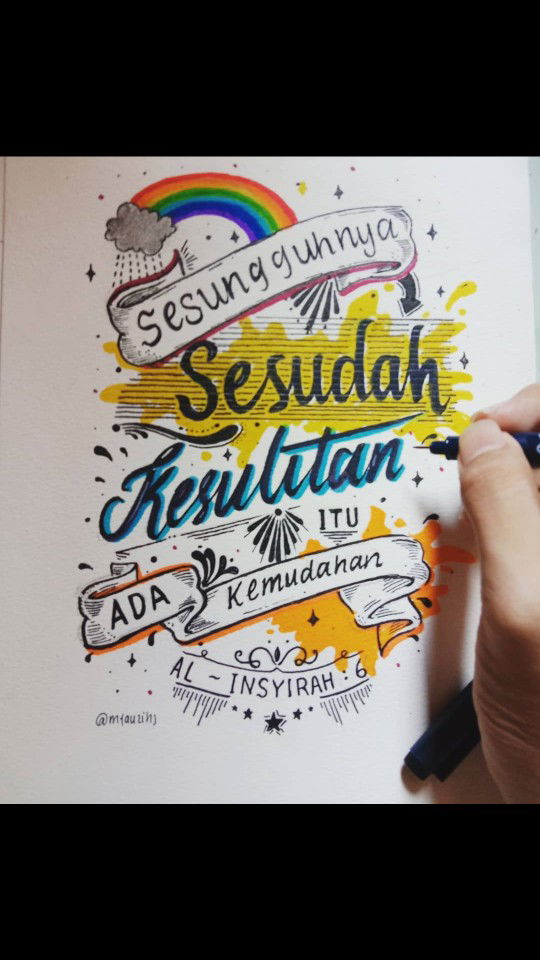 Sesungguhnya
Sesudah
Kesulitan
ITU
ADA
Kemudahan
AL - INSYIRAH : 6
@mfauzihj